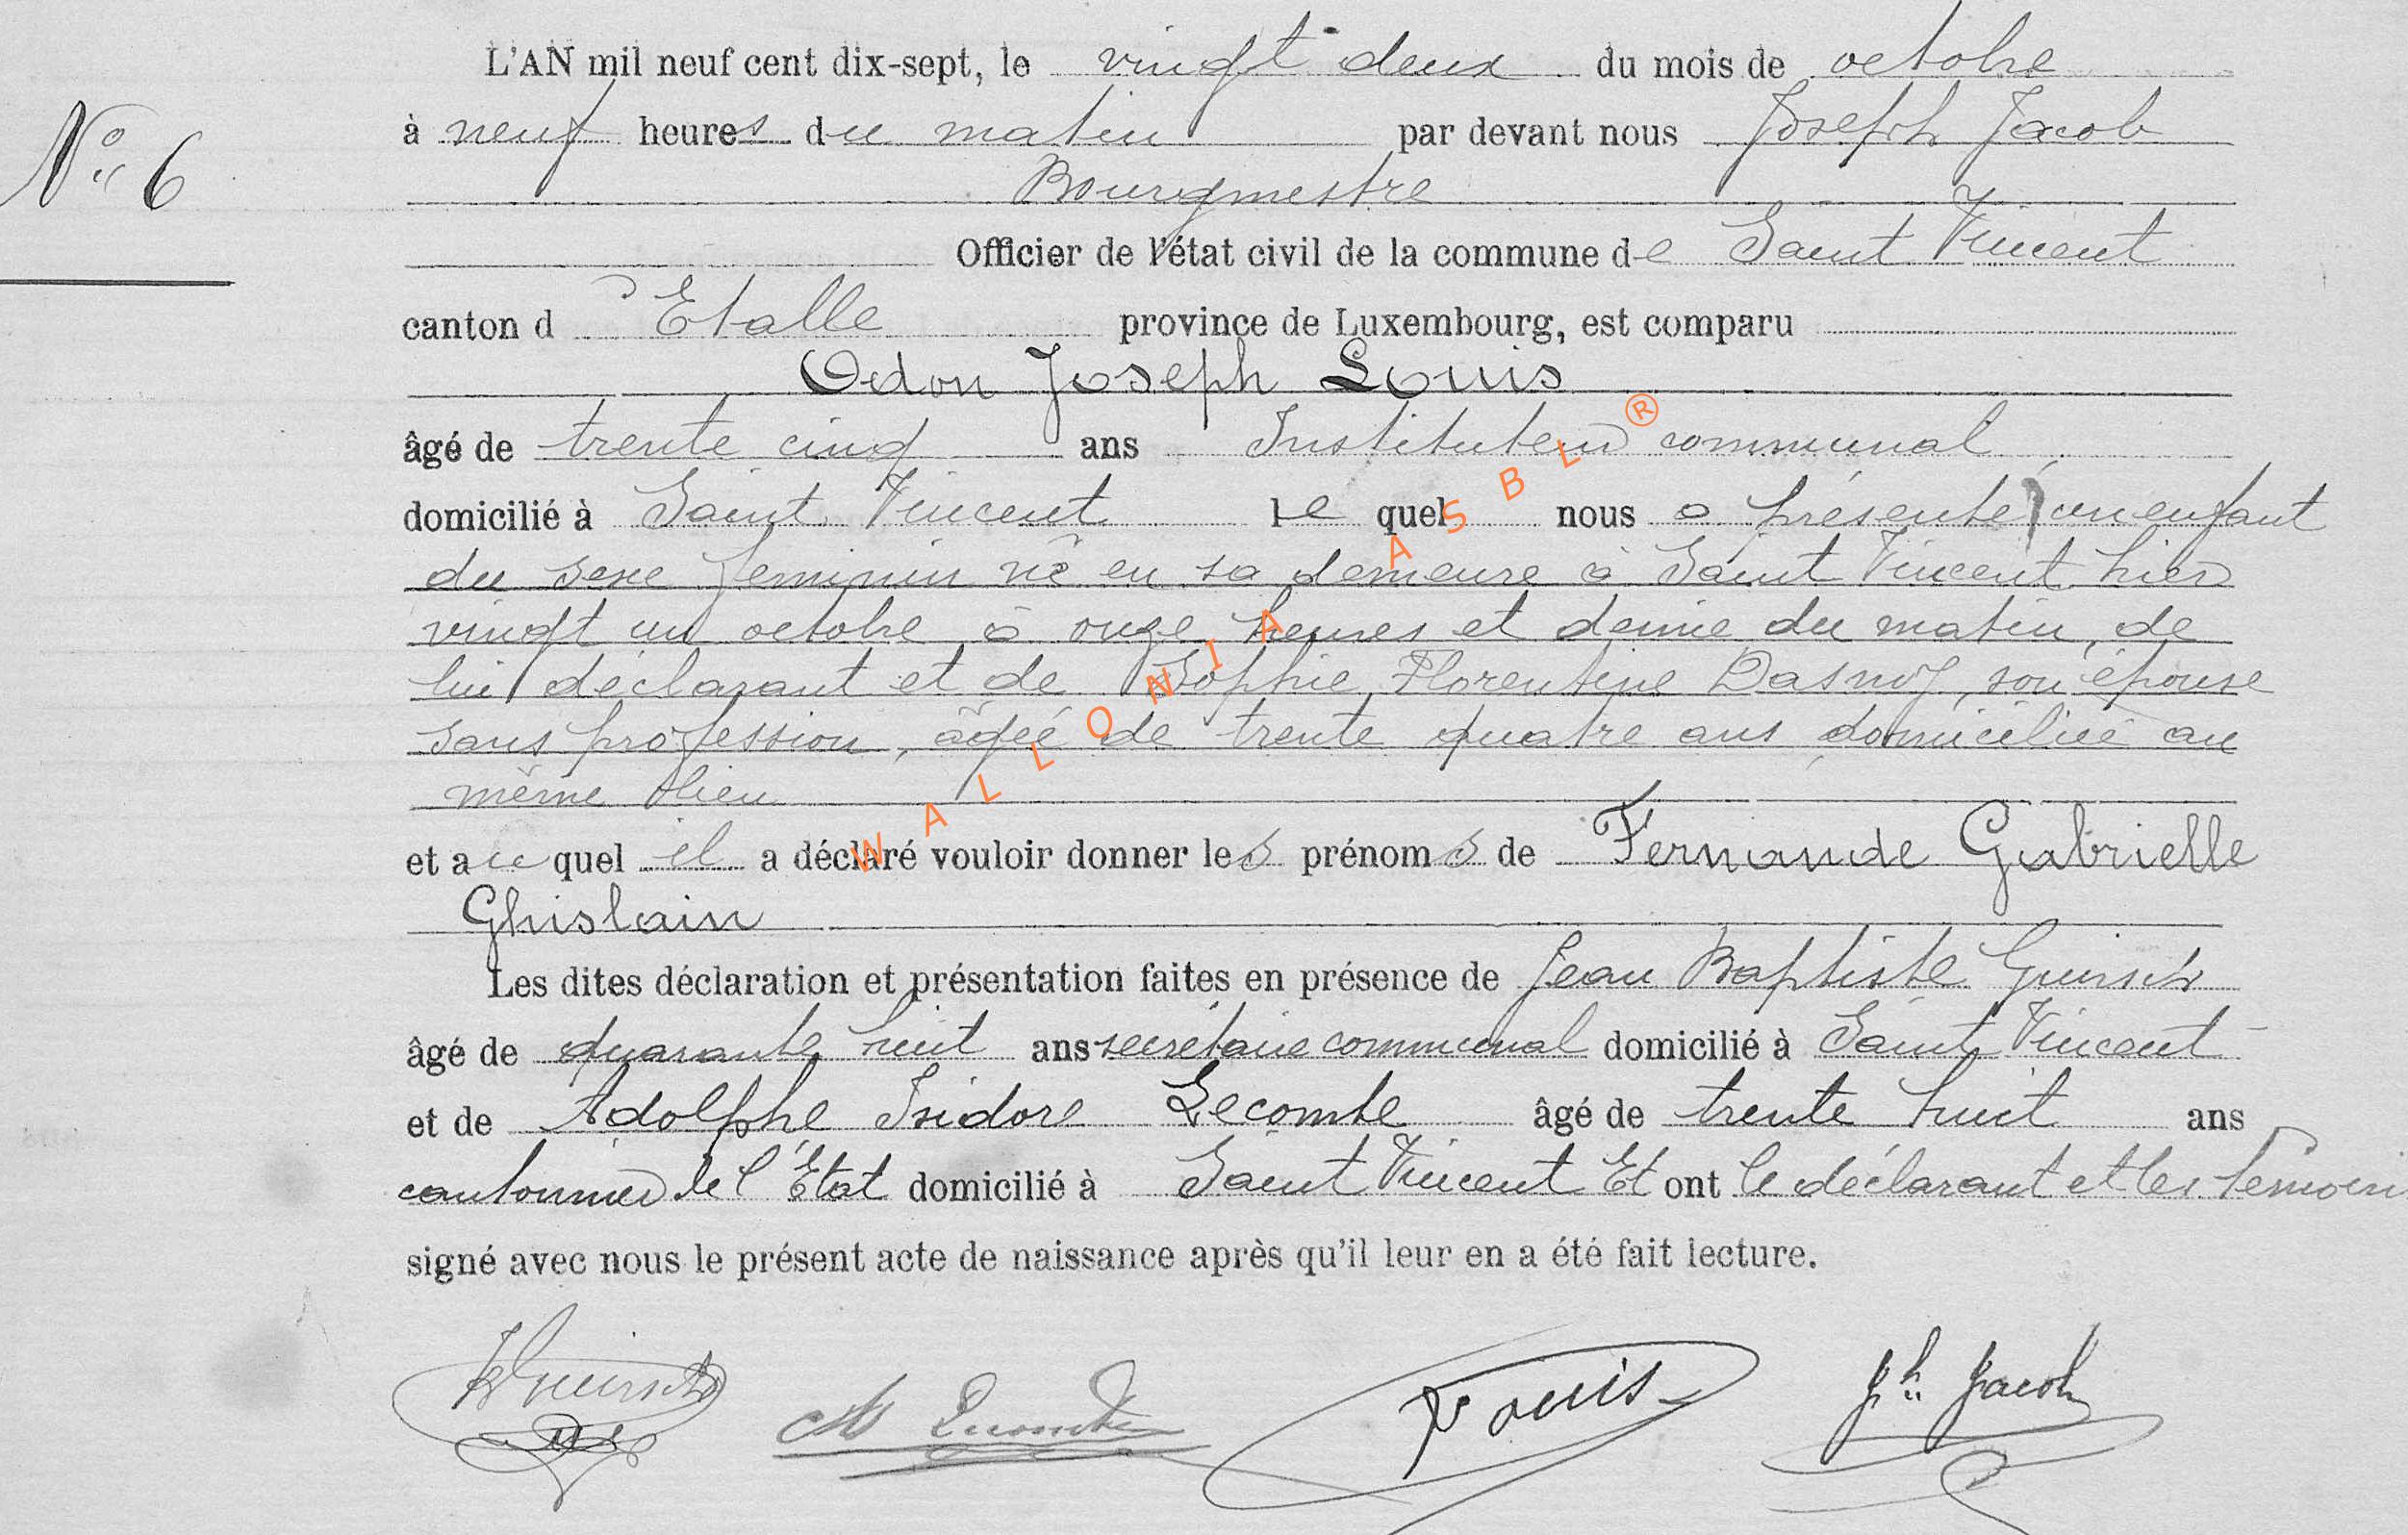 L'AN mil neuf cent dix-sept, le vingt deux du mois de octobre
N° 6
à neuf heures du matin par devant nous Joseph Jacob
Bourgmestre
Officier de l'état civil de la commune de Saint Vincent
canton d'Etalle province de Luxembourg, est comparu
Odon Joseph Louis
âgé de trente cinq ans Instituteur communal
domicilié à Saint Vincent lequel nous a présenté un enfant
du sexe feminin né en sa demeure à Saint Vincent hier
vingt un octobre à onze heures et demie du matin, de
lui déclarant et de Sophie Florentine Dasnoy, son épouse
sans profession, âgée de trente quatre ans domiciliée au
même lieu
et auquel il a déclaré vouloir donner les prénoms de Fernande Gabrielle
Ghislain
Les dites déclaration et présentation faites en présence de Jean Baptiste Guirsch
âgé de quarante huit ans secrétaire communal domicilié à Saint Vincent
et de Adolphe Isidore Lecomte âgé de trente huit ans
cantonnier de l'État domicilié à Saint Vincent Et ont le déclarant et les témoins
signé avec nous le présent acte de naissance après qu'il leur en a été fait lecture.
Guirsch Lecomte Louis Jh Jacob
WALLONIA ASBL ®